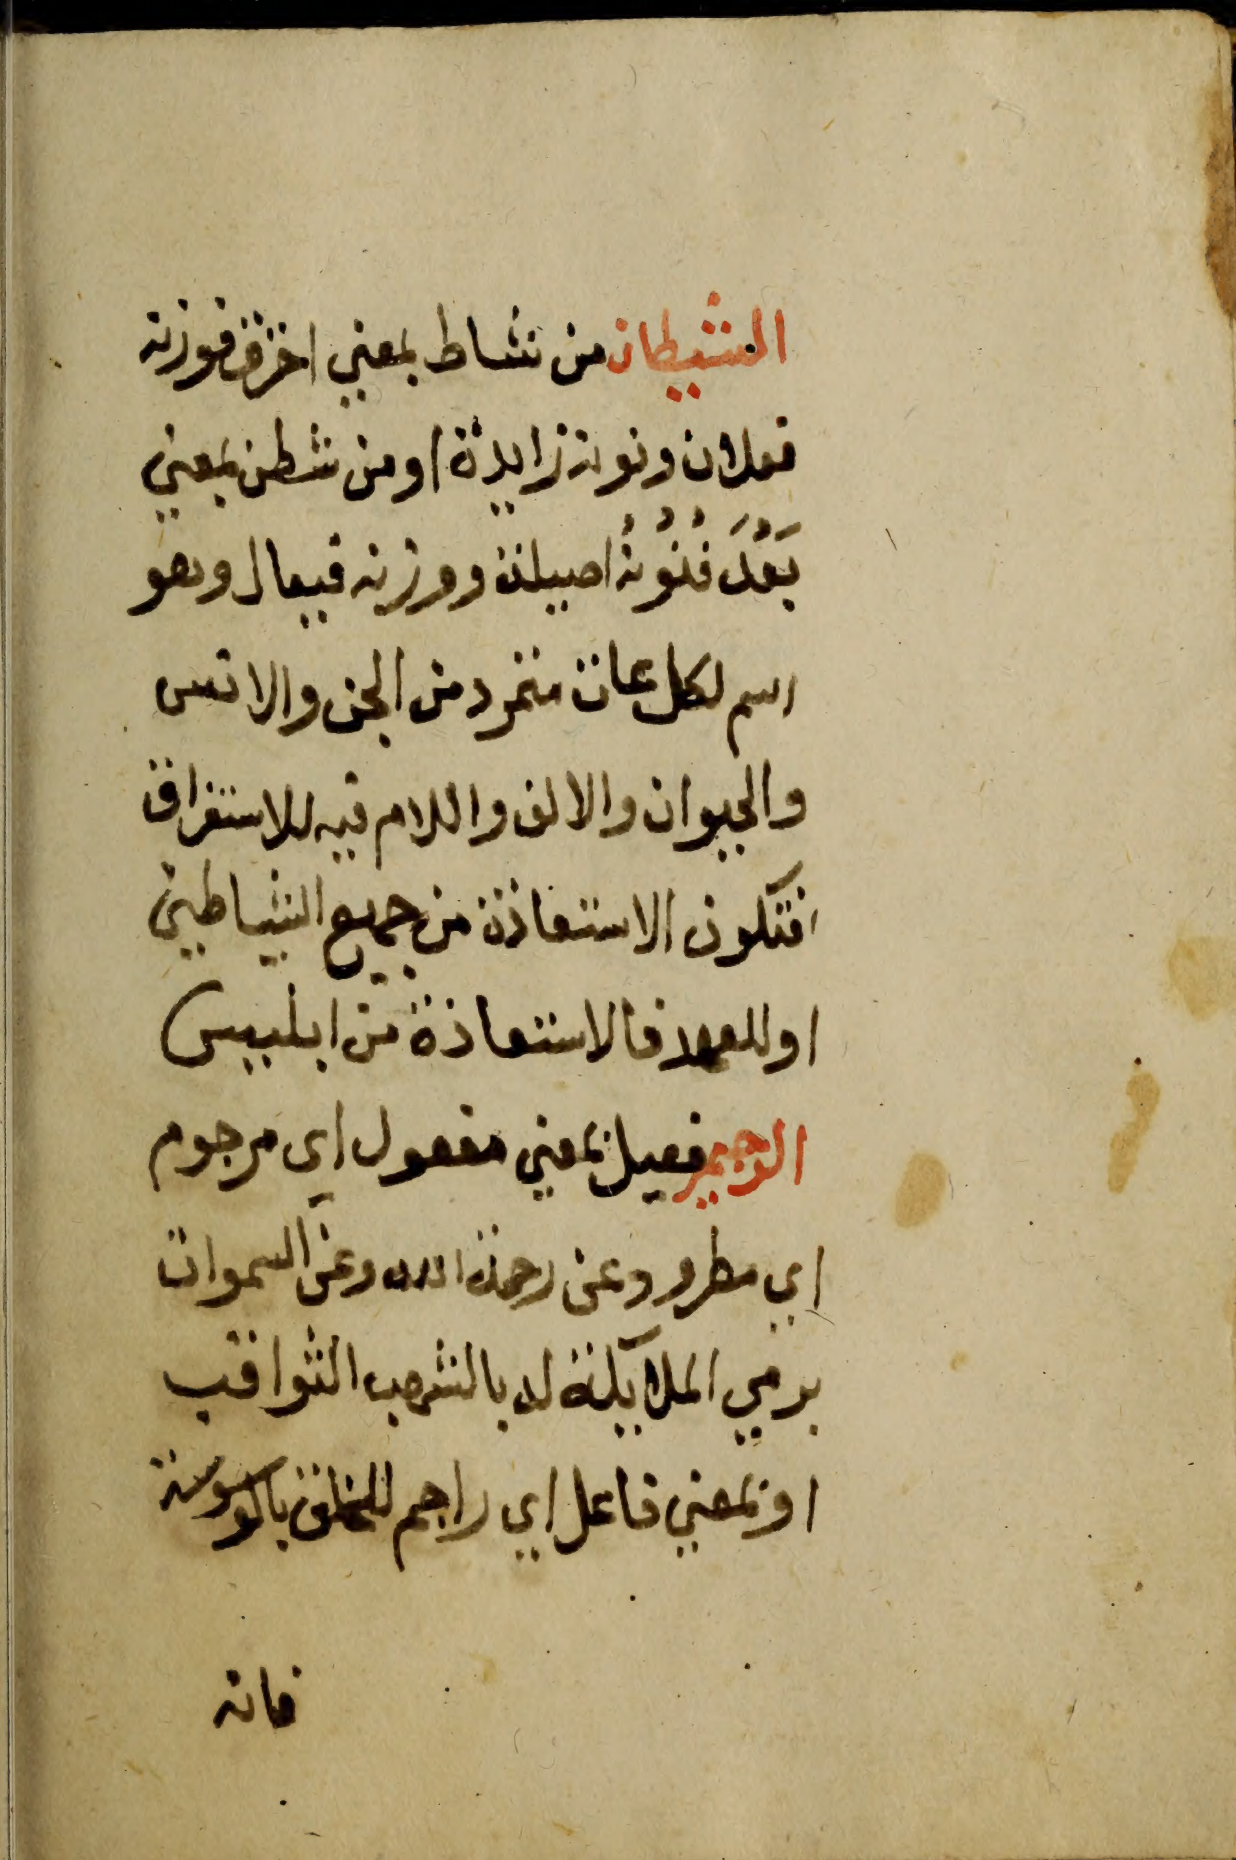 الشيطان من شاط بمعني احترق فوزنه
فعلان ونونه زايدة او من شطن بمعني
بَعُدَ فَنُونُهُ اصيلة ووزنه فيعال وهو
اسم لكل عات متمرد من الجن والانس
والحيوان والالف واللام فيه للاستغراق
فتكون الاستعاذة من جميع الشياطين
او للعهد فالاستعاذة من ابليس
الرجيم فعيل بمعني مفعول اي مرجوم
اي مطرود عن رحمة الله وعن السموات
برمي الملايكة له بالشهب الثواقب
او بمعني فاعل اي راجم للخلق بالوسوسة
فانه